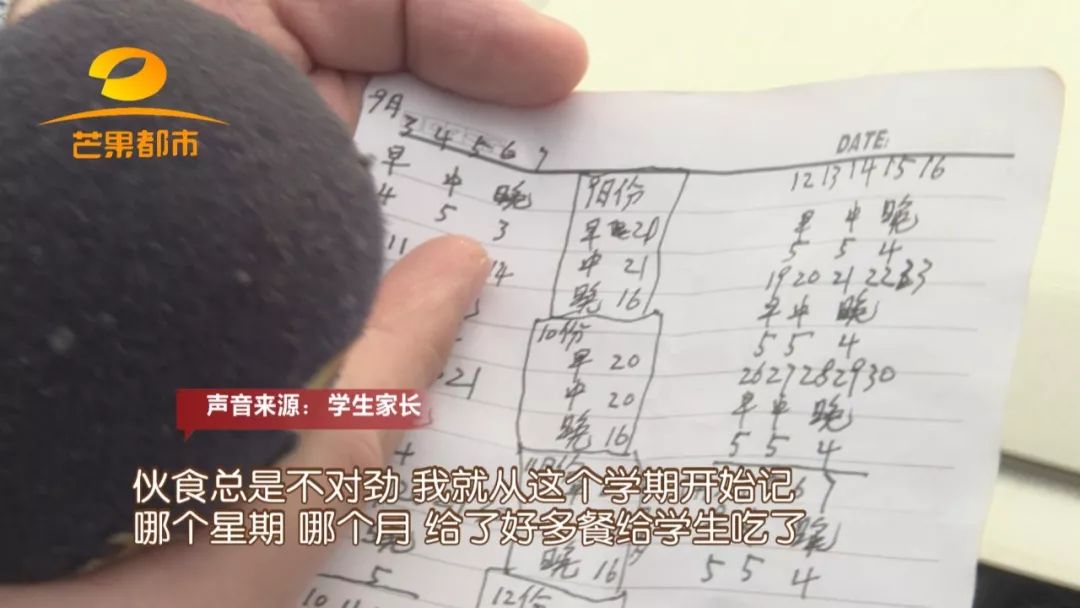 芒果都市
9月
3 4 5 6 7
早 中 晚
4 5 3
11
14
21
5
月份
早 21
中 21
晚 16
10份
早 20
中 20
晚 16
晚 16
12份
DATE:
12 13 14 15 16
早 中 晚
5 5 4
19 20 21 22 23
早 中 晚
5 5 4
26 27 28 29 30
早 中 晚
5 5 4
6 7
晚
5 5 4
声音来源： 学生家长
伙食总是不对劲 我就从这个学期开始记
哪个星期 哪个月 给了好多餐给学生吃了